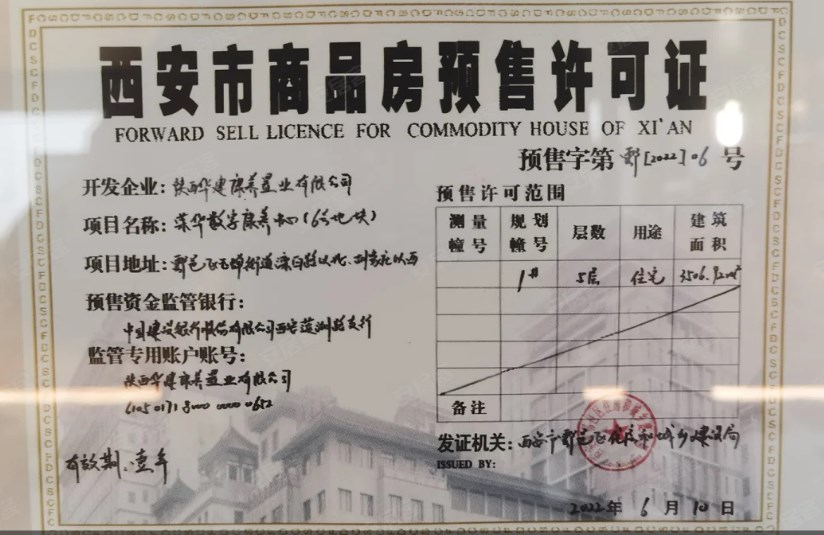 西安市商品房预售许可证
FORWARD SELL LICENCE FOR COMMODITY HOUSE OF XI'AN
预售字第鄠[2022]06号
开发企业：陕西华建康养置业有限公司
项目名称：荣华数字康养中心(6号地块)
项目地址：鄠邑区玉蝉街道潭白路以北、刘家庄以西
预售资金监管银行：
中国建设银行股份有限公司西安莲湖路支行
监管专用账户账号：
陕西华建康养置业有限公司
6105 0171 8000 0000 0652
有效期：壹年
预售许可范围
测量幢号 规划幢号 层数 用途 建筑面积
1# 5层 住宅 3506.92m²
备注
发证机关：西安市鄠邑区住房和城乡建设局
ISSUED BY:
2022年6月10日